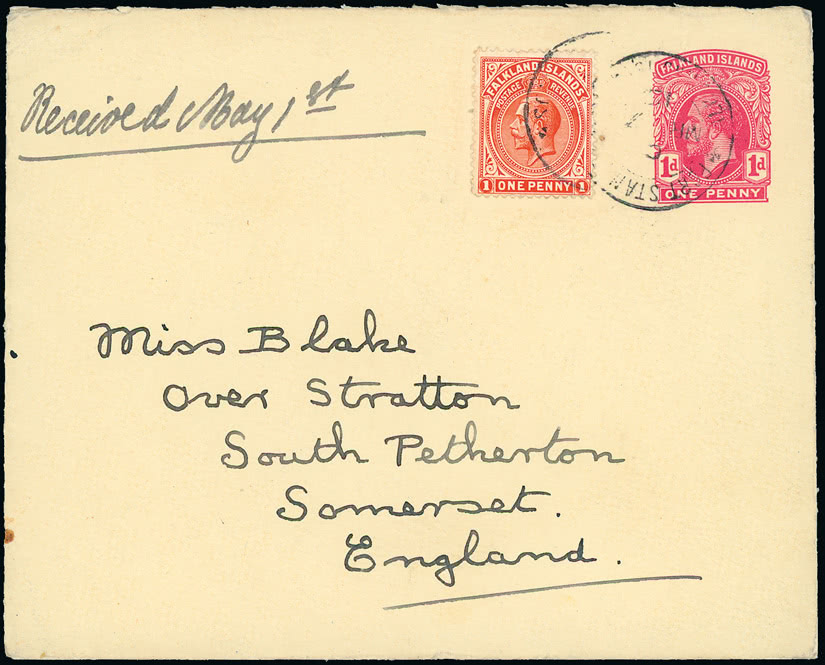 Received May 1st
FALKLAND ISLANDS
POSTAGE REVENUE
1 ONE PENNY 1
FALKLAND ISLANDS
1d 1d
ONE PENNY
Miss Blake
Over Stratton
South Petherton
Somerset.
England.